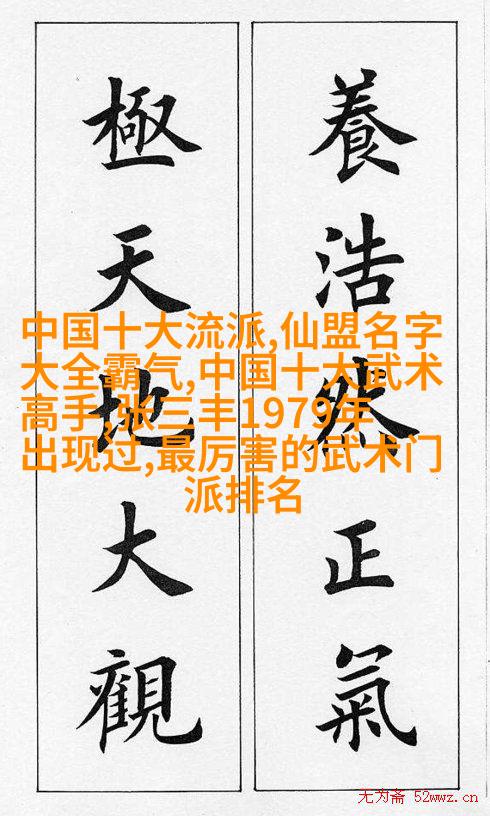 養浩然正氣
極天地大觀
中国十大流派,仙盟名字
大全霸气,中国十大武术
高手,张三丰1979年
出现过,最厉害的武术门
派排名
无为斋 52wwz.cn